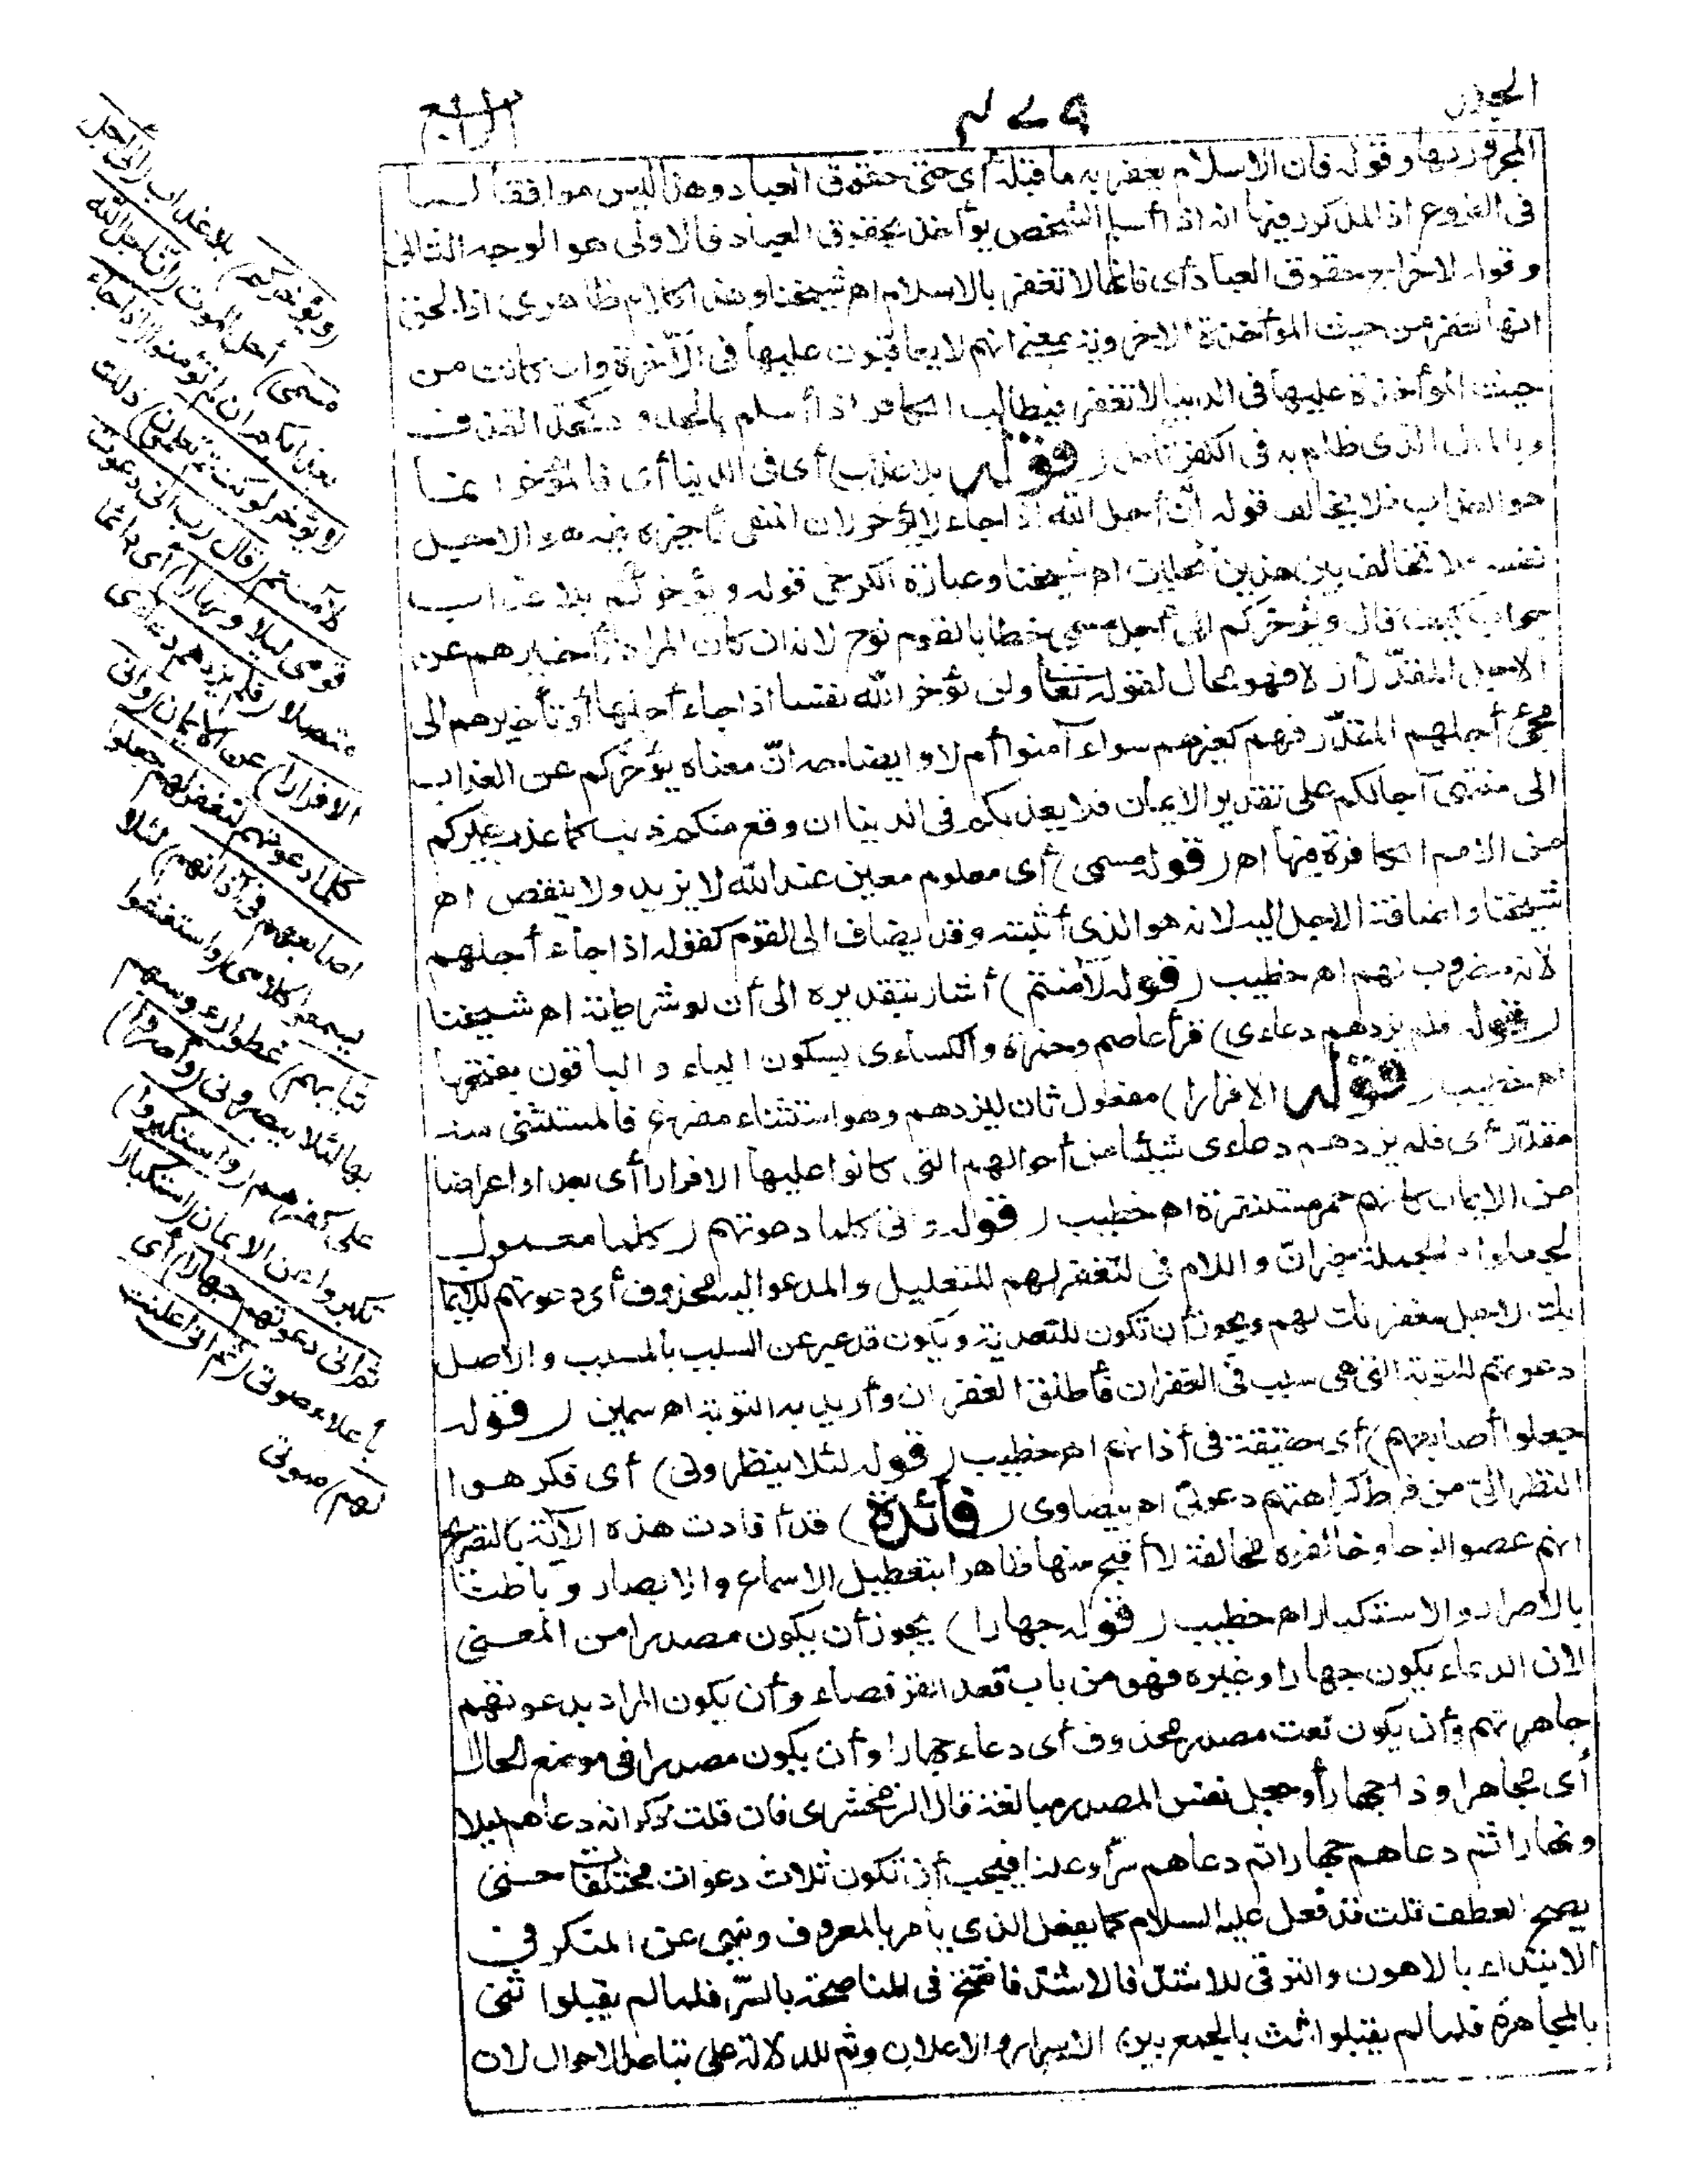 الرابع
المجرور بها وقوله فان الاسلام يغفر به ما قبله أى حتى حقوق العباد وهذا ليس موافقا لما
فى الفروع اذ المذكور فيها انه اذا أسلم الشخص يؤاخذ بحقوق العباد فالاولى هو الوجه الثانى
وقوله لاخراج حقوق العباد أى فانها لا تغفر بالاسلام اه شيخنا وهذا كلام ظاهرى اذ الحق
انها تغفر من حيث المؤاخذة الاخروية بمعنى انهم لا يعاقبون عليها فى الآخرة وان كانت من
حيث المؤاخذة عليها فى الدنيا لا تغفر فيطالب الكافر اذا أسلم بالحدود كحد القذف
وبالمال الذى ظلم به فى الكفر تأمل (قوله بلا عذاب) أى فى الدنيا أى فالمؤخر انما
هو العذاب فلا يخالف قوله ان أجل الله اذا جاء لا يؤخر لان المنفى تأخيره فيه هو الاجل
نفسه فلا تخالف بين هذين المحلين اه شيخنا وعبارة الكرخى قوله ويؤخركم بلا عذاب
جواب كيف قال ويؤخركم الى أجل مسمى خطابا لقوم نوح لانه ان كان المراد تأخيرهم عن
الاجل المقدر أزلا فهو محال لقوله تعالى ولن يؤخر الله نفسا اذا جاء أجلها أو تأخيرهم الى
مجئ أجلهم المقدر فهم كغيرهم سواء آمنوا أم لا وايضاحه انّ معناه يؤخركم عن العذاب
الى منتهى آجالكم على تقدير الايمان فلا يعذبكم فى الدنيا ان وقع منكم ذنب كما عذب غيركم
من الامم الكافرة فيها اه (قوله مسمى) أى معلوم معين عند الله لا يزيد ولا ينقص اه
شيخنا واضافة الاجل اليه لانه هو الذى أثبته وقد يضاف الى القوم كقوله اذا جاء أجلهم
لانه مضروب لهم اه خطيب (قوله لآمنتم) أشار بتقديره الى أن لو شرطية اه شيخنا
(قوله فلم يزدهم دعاءى) قرأ عاصم وحمزة والكساءى بسكون الياء والباقون بفتحها
اه خطيب (قوله الا فرارا) مفعول ثان ليزدهم وهو استثناء مفرغ فالمستثنى منه
مقدّر أى فلم يزدهم دعاءى شيئا من أحوالهم التى كانوا عليها الا فرارا أى بعدا واعراضا
من الايمان كانهم حمر مستنفرة اه خطيب (قوله وانى كلما دعوتهم) كلما معمول
لجعلوا والجملة خبر انّ واللام فى لتغفر لهم للتعليل والمدعو اليه محذوف أى دعوتهم للايما
بك لاجل مغفرتك لهم ويجوز أن تكون للتعدية ويكون قد عبر عن السبب بالمسبب والاصل
دعوتهم للتوبة التى هى سبب فى الغفران فأطلق الغفران وأريد به التوبة اه سمين (قوله
جعلوا أصابعهم) أى حقيقة فى أذانهم اه خطيب (قوله لئلا ينظرونى) أى فكرهوا
النظر الىّ من فرط كراهتهم دعوتى اه بيضاوى (فائدة) قد أفادت هذه الآية بالتصريح
انهم عصوا نوحا وخالفوه مخالفة لا أقبح منها ظاهرا بتعطيل الاسماع والابصار وباطنا
بالاصرار والاستكبار اه خطيب (قوله جهارا) يجوز أن يكون مصدرا من المعنى
لان الدعاء يكون جهارا وغيره فهو من باب قعد القرفصاء وأن يكون المراد بدعوتهم
جاهرتهم وأن يكون نعت مصدر محذوف أى دعاء جهارا وأن يكون مصدرا فى موضع الحال
أى مجاهرا وذا جهار أو جعل نفس المصدر مبالغة قال الزمخشرى فان قلت ذكر انه دعاهم ليلا
ونهارا ثم دعاهم جهارا ثم دعاهم سرّا وعلنا فيجب أن تكون ثلاث دعوات مختلفات حتى
يصح العطف قلت قد فعل عليه السلام كما يفعل الذى يأمر بالمعروف وينهى عن المنكر فى
الابتداء بالاهون والترقى للاشدّ فالاشد فافتتح فى المناصحة بالسّر فلما لم يقبلوا ثنى
بالمجاهرة فلما لم يقبلوا ثلث بالجمع بين الاسرار والاعلان وثم للدلالة على تباعد الاحوال لان
(ويؤخركم) بلا عذاب (الى أجل
مسمى) أجل الموت (ان أجل الله)
بعذابكم ان لم تؤمنوا (اذا جاء
لا يؤخر لو كنتم تعلمون) ذلك
لآمنتم (قال رب انى دعوت
قومى ليلا ونهارا) أى دائما
متصلا (فلم يزدهم دعاءى
الا فرارا) عن الايمان (وانى
كلما دعوتهم لتغفر لهم جعلوا
اصابعهم فى آذانهم) لئلا
يسمعوا كلامى (واستغشوا
ثيابهم) غطوا رءوسهم
بها لئلا يبصرونى (وأصروا)
على كفرهم (واستكبروا)
تكبروا عن الايمان (استكبارا
ثم انى دعوتهم جهارا) أى
بأعلاء صوتى (ثم انى اعلنت
لهم) صوتى